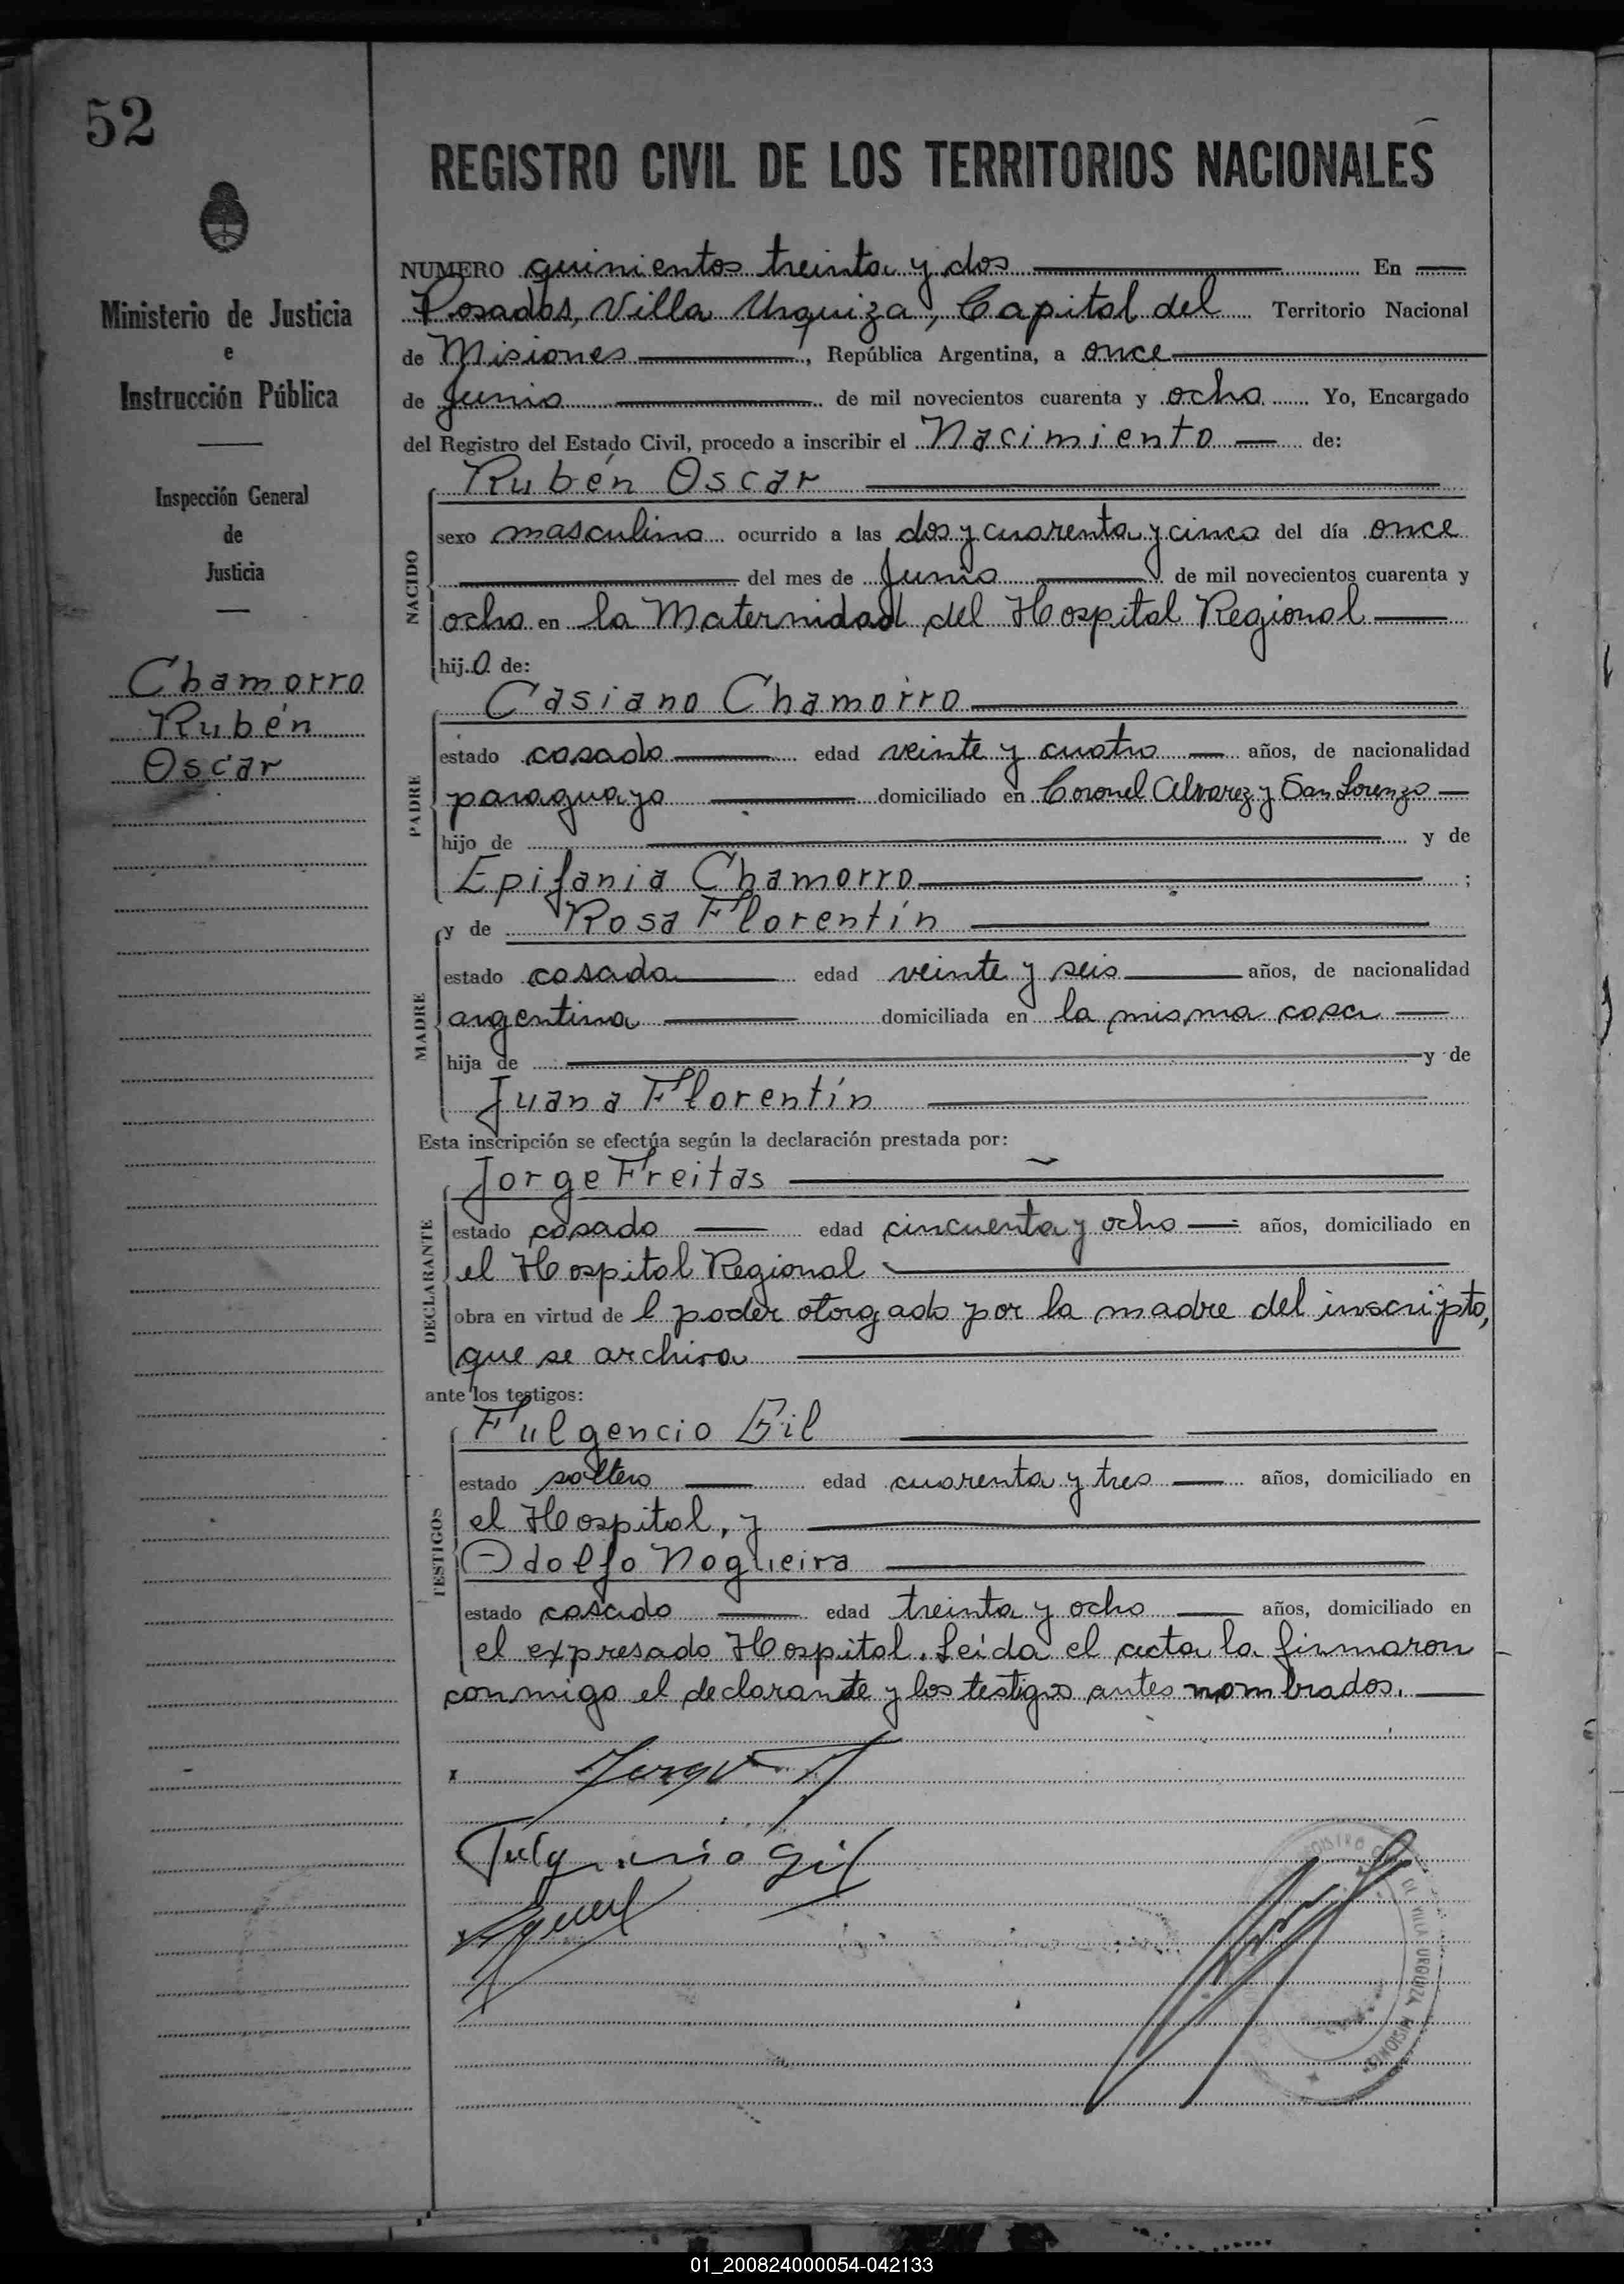 52
REGISTRO CIVIL DE LOS TERRITORIOS NACIONALES
Ministerio de Justicia
e
Instrucción Pública
Inspección General
de
Justicia
Chamorro
Rubén
Oscar
NUMERO quinientos treinta y dos En
Posadas, Villa Urquiza, Capital del Territorio Nacional
de Misiones, República Argentina, a once
de Junio de mil novecientos cuarenta y ocho Yo, Encargado
del Registro del Estado Civil, procedo a inscribir el Nacimiento de:
NACIDO
Rubén Oscar
sexo masculino ocurrido a las dos y cuarenta y cinco del día once
del mes de Junio de mil novecientos cuarenta y
ocho en la Maternidad del Hospital Regional
hijo de:
PADRE
Casiano Chamorro
estado casado edad veinte y cuatro años, de nacionalidad
paraguaya domiciliado en Coronel Alvarez y San Lorenzo
hijo de y de
Epifania Chamorro;
MADRE
y de Rosa Florentín
estado casada edad veinte y seis años, de nacionalidad
argentina domiciliada en la misma casa
hija de y de
Juana Florentín
Esta inscripción se efectúa según la declaración prestada por:
DECLARANTE
Jorge Freitas
estado casado edad cincuenta y ocho años, domiciliado en
el Hospital Regional
obra en virtud de l poder otorgado por la madre del inscripto,
que se archiva
ante los testigos:
TESTIGOS
Fulgencio Gil
estado soltero edad cuarenta y tres años, domiciliado en
el Hospital, y
Adolfo Nogueira
estado casado edad treinta y ocho años, domiciliado en
el expresado Hospital. Leída el acta la firmaron
conmigo el declarante y los testigos antes nombrados.
Fulgencio Gil
REGISTRO DE VILLA URQUIZA MISIONES
01_200824000054-042133